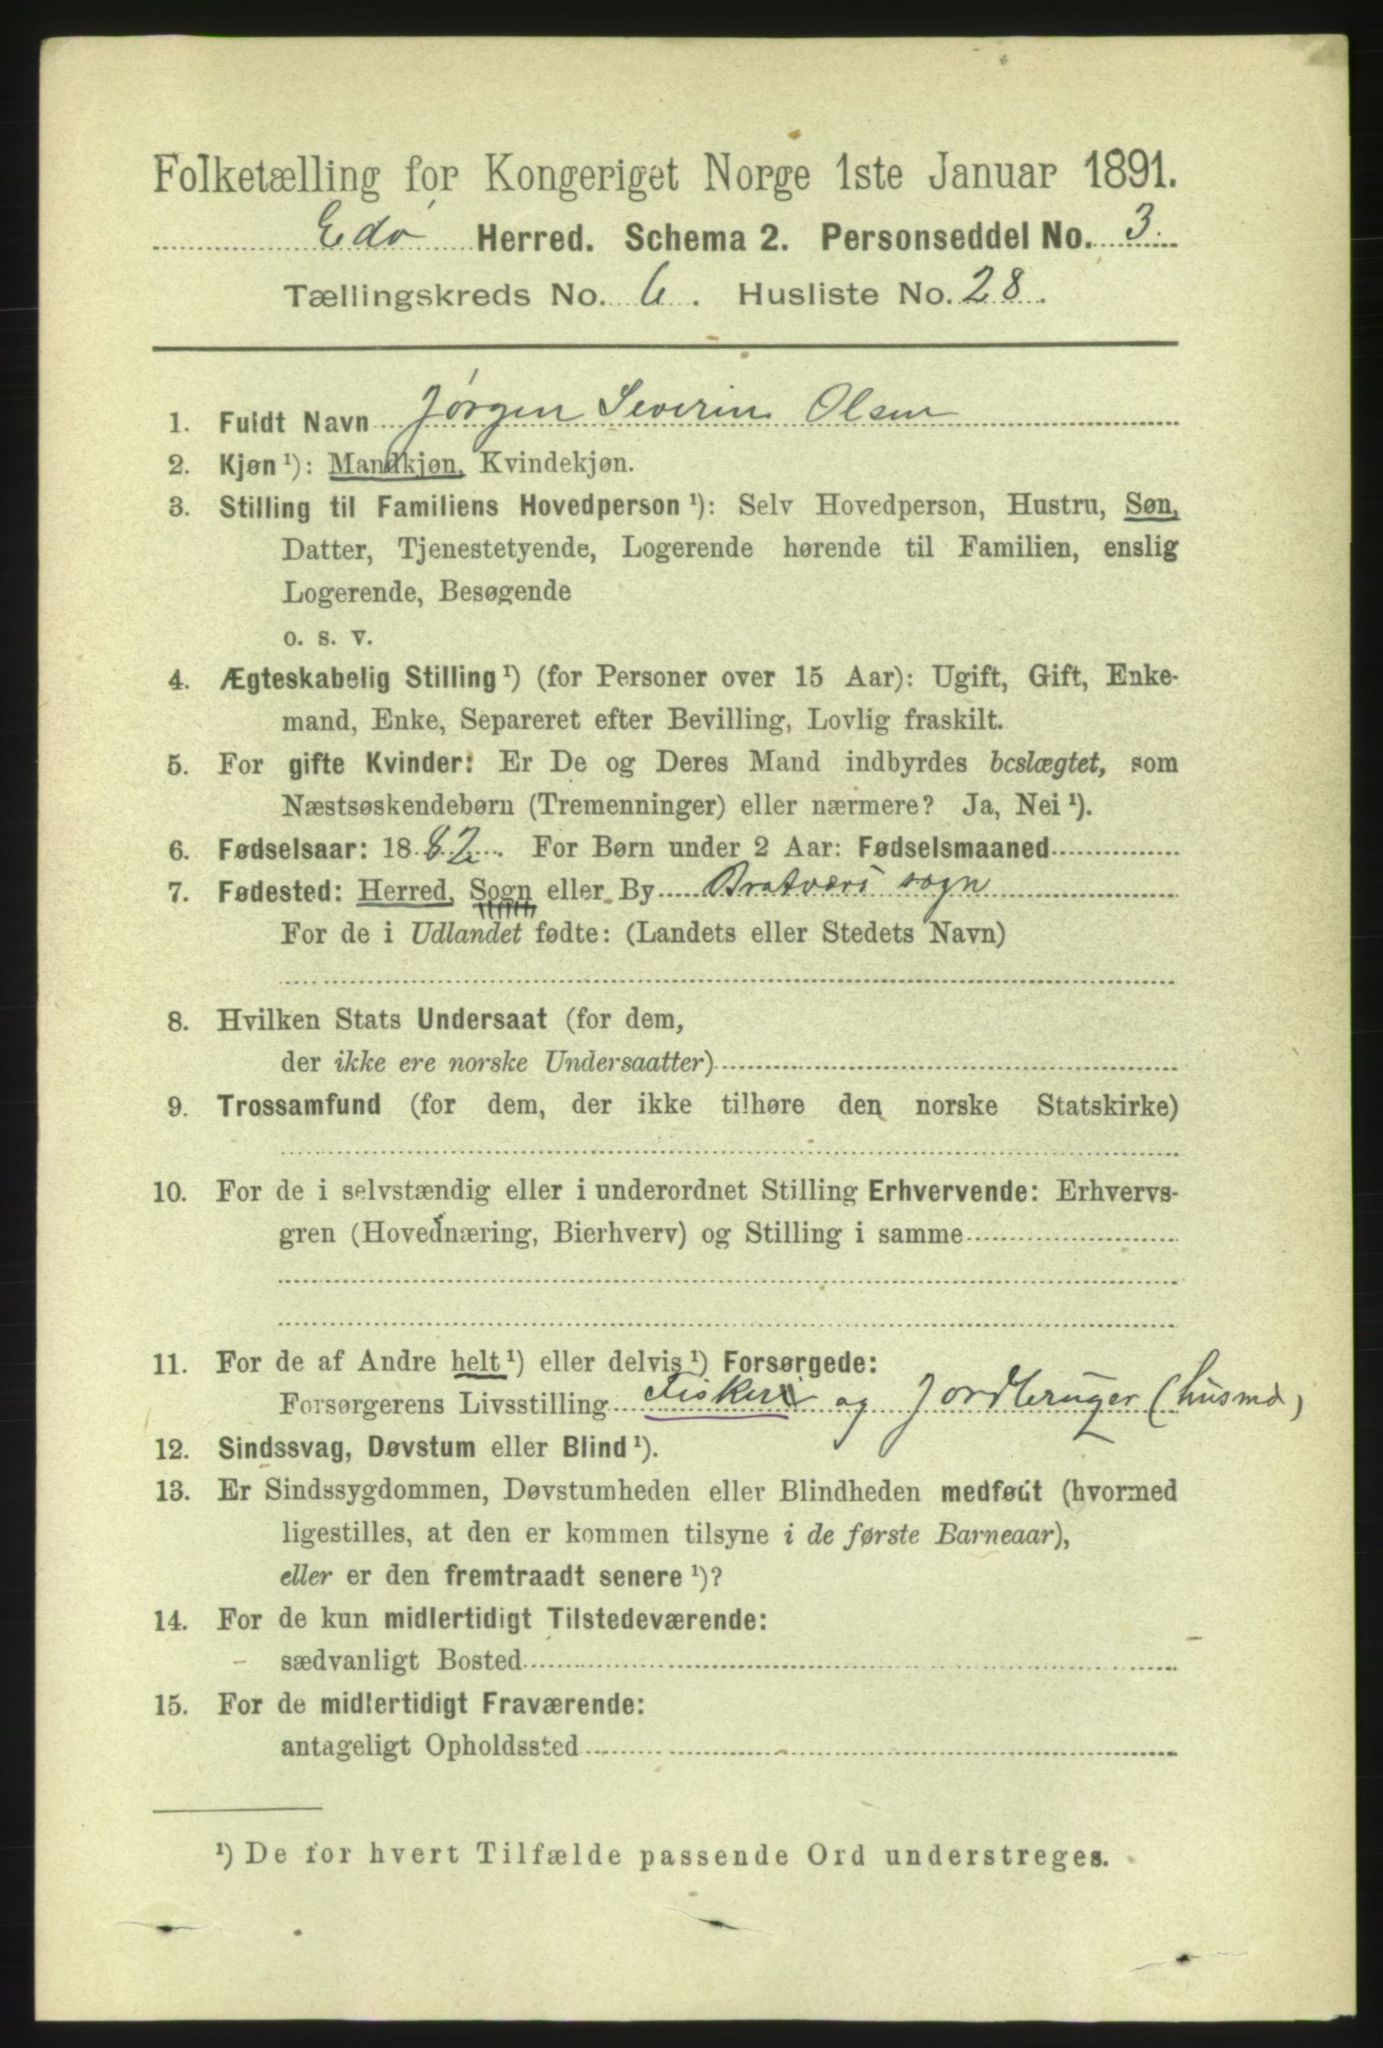 Folketælling for Kongeriget Norge 1ste Januar 1891.
Edø Herred. Schema 2. Personseddel No. 3.
Tællingskreds No. 6. Husliste No. 28.
1. Fuldt Navn Jørgen Severin Olsen
2. Kjøn ¹): Mandkjøn, Kvindekjøn.
3. Stilling til Familiens Hovedperson ¹): Selv Hovedperson, Hustru, Søn,
Datter, Tjenestetyende, Logerende hørende til Familien, enslig
Logerende, Besøgende
o. s. v.
4. Ægteskabelig Stilling ¹) (for Personer over 15 Aar): Ugift, Gift, Enke-
mand, Enke, Separeret efter Bevilling, Lovlig fraskilt.
5. For gifte Kvinder: Er De og Deres Mand indbyrdes beslægtet, som
Næstsøskendebørn (Tremenninger) eller nærmere? Ja, Nei ¹).
6. Fødselsaar: 1882. For Børn under 2 Aar: Fødselsmaaned
7. Fødested: Herred, Sogn eller By Bratværs sogn
For de i Udlandet fødte: (Landets eller Stedets Navn)
8. Hvilken Stats Undersaat (for dem,
der ikke ere norske Undersaatter)
9. Trossamfund (for dem, der ikke tilhøre den norske Statskirke)
10. For de i selvstændig eller i underordnet Stilling Erhvervende: Erhvervs-
gren (Hovednæring, Bierhverv) og Stilling i samme
11. For de af Andre helt ¹) eller delvis ¹) Forsørgede:
Forsørgerens Livsstilling Fisker og Jordbruger (husmd)
12. Sindssvag, Døvstum eller Blind ¹).
13. Er Sindssygdommen, Døvstumheden eller Blindheden medfødt (hvormed
ligestilles, at den er kommen tilsyne i de første Barneaar),
eller er den fremtraadt senere ¹)?
14. For de kun midlertidigt Tilstedeværende:
sædvanligt Bosted
15. For de midlertidigt Fraværende:
antageligt Opholdssted
¹) De for hvert Tilfælde passende Ord understreges.